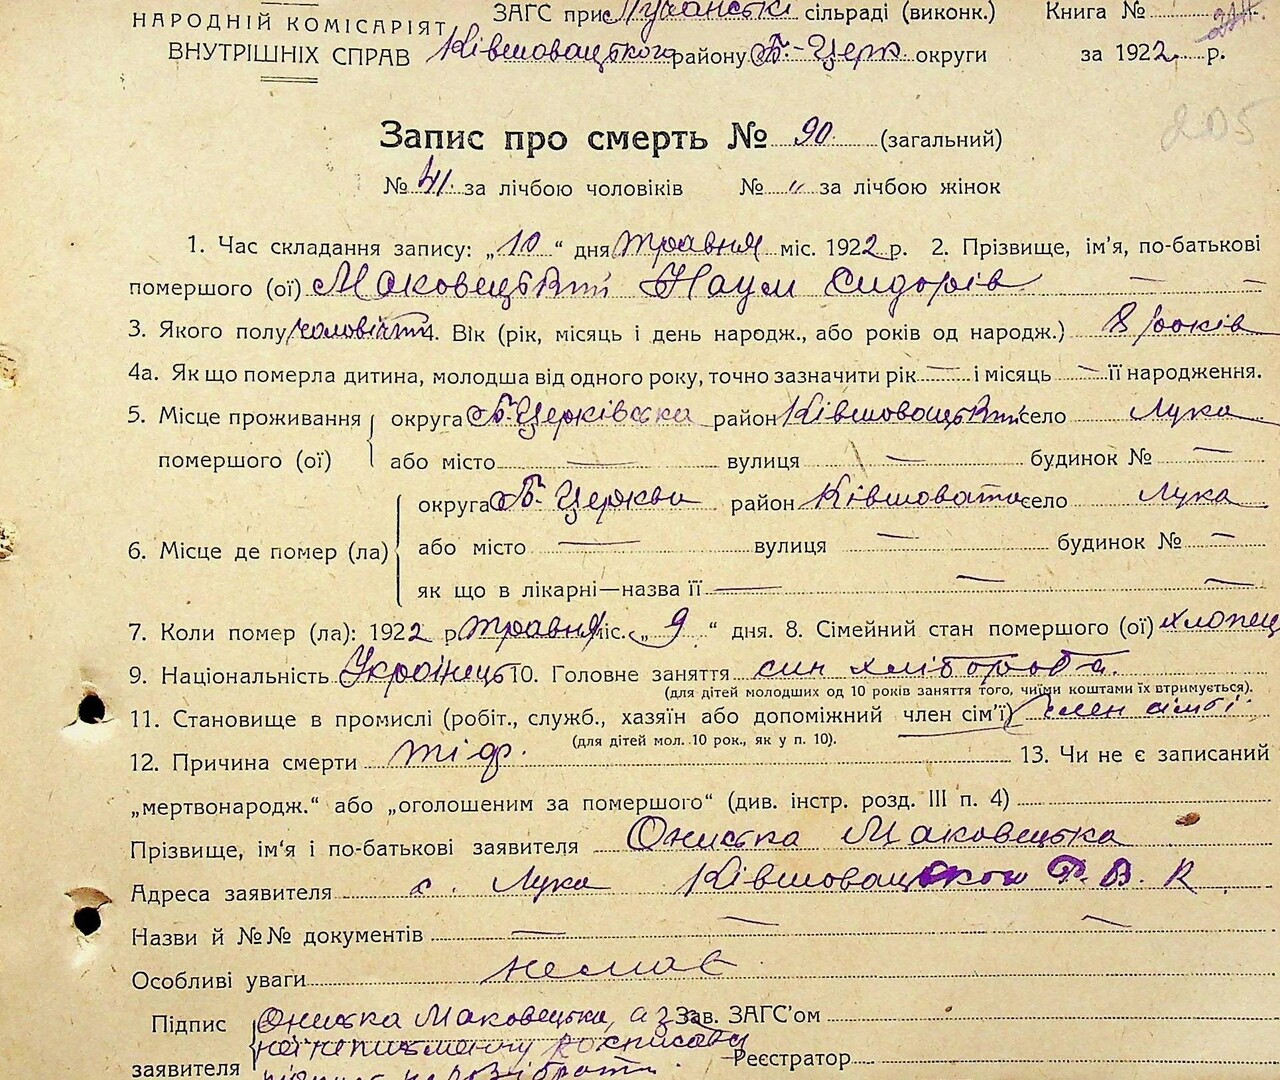 НАРОДНІЙ КОМІСАРІЯТ
ВНУТРІШНІХ СПРАВ
ЗАГС при Лучанські сільраді (виконк.)
Ківшовацького району Б.-Церк. округи
Книга №
за 1922 р.
205
Запис про смерть № 90 (загальний)
№ 41. за лічбою чоловіків № " за лічбою жінок
1. Час складання запису: „10“ дня травня міс. 1922 р. 2. Прізвище, ім'я, по-батькові
помершого (ої) Маковецький Наум Сидорів — —
3. Якого полу чоловічий 4. Вік (рік, місяць і день народж., або років од народж.) 8 років
4а. Як що померла дитина, молодша від одного року, точно зазначити рік — і місяць — її народження.
5. Місце проживання помершого (ої)
округа Б.-Церківська район Ківшовацький село Лука
або місто — вулиця — будинок № —
6. Місце де помер (ла)
округа Б.-Церква район Ківшовата село Лука
або місто — вулиця — будинок № —
як що в лікарні—назва її — — —
7. Коли помер (ла): 1922 р. травня міс. „9“ дня. 8. Сімейний стан помершого (ої) хлопець
9. Національність Українець 10. Головне заняття син хлібороба.
(для дітей молодших од 10 років заняття того, чиїми коштами їх втримується).
11. Становище в промислі (робіт., служб., хазяїн або допоміжний член сім'ї) член сімьї
(для дітей мол. 10 рок., як у п. 10).
12. Причина смерти тіф. 13. Чи не є записаний
„мертвонародж.“ або „оголошеним за помершого“ (див. інстр. розд. III п. 4)
Прізвище, ім'я і по-батькові заявителя Онистка Маковецька
Адреса заявителя с. Лука Ківшовацького Р. В. К.
Назви й №№ документів — — —
Особливі уваги немає
Підпис заявителя
Онистка Маковецька, а з
Зав. ЗАГС'ом
Реєстратор